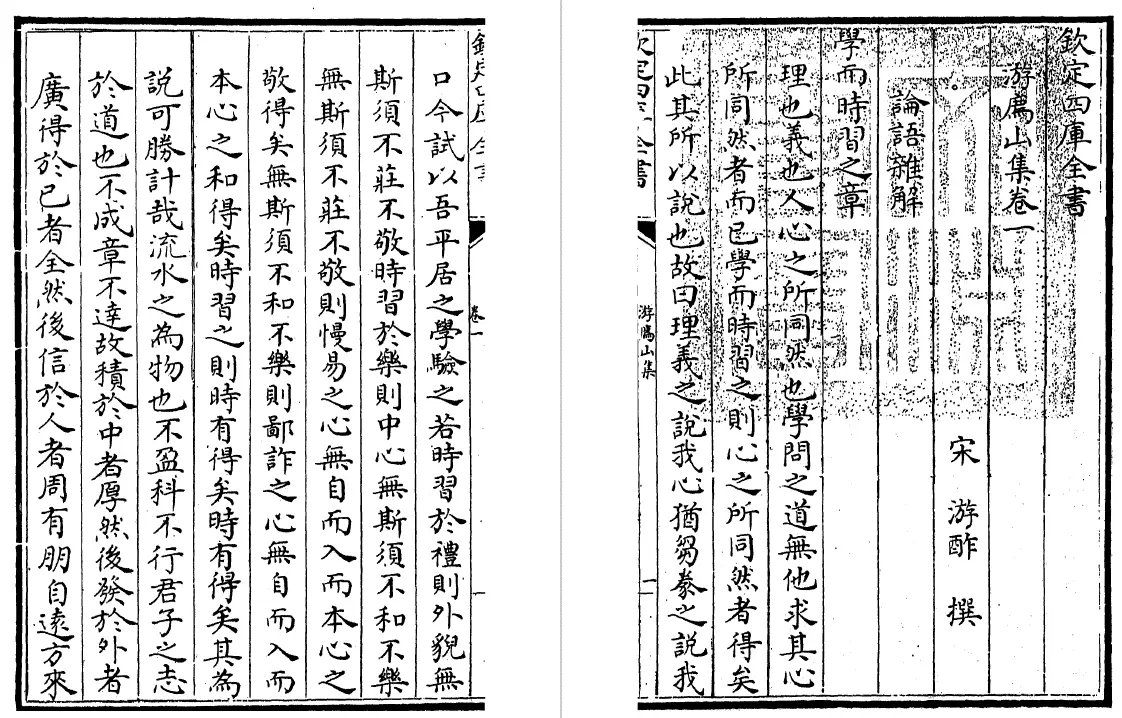 欽定四庫全書
游廌山集卷一
宋 游酢 撰
論語雜解
學而時習之章
理也義也人心之所同然也學問之道無他求其心
所同然者而已學而時習之則心之所同然者得矣
此其所以說也故曰理義之說我心猶芻豢之說我
欽定四庫全書
游廌山集
一
欽定四庫全書
卷一
一
口今試以吾平居之學驗之若時習於禮則外貌無
斯須不莊不敬時習於樂則中心無斯須不和不樂
無斯須不莊不敬則慢易之心無自而入而本心之
敬得矣無斯須不和不樂則鄙詐之心無自而入而
本心之和得矣時習之則時有得矣時有得矣其為
說可勝計哉流水之為物也不盈科不行君子之志
於道也不成章不達故積於中者厚然後發於外者
廣得於已者全然後信於人者周有朋自遠方來